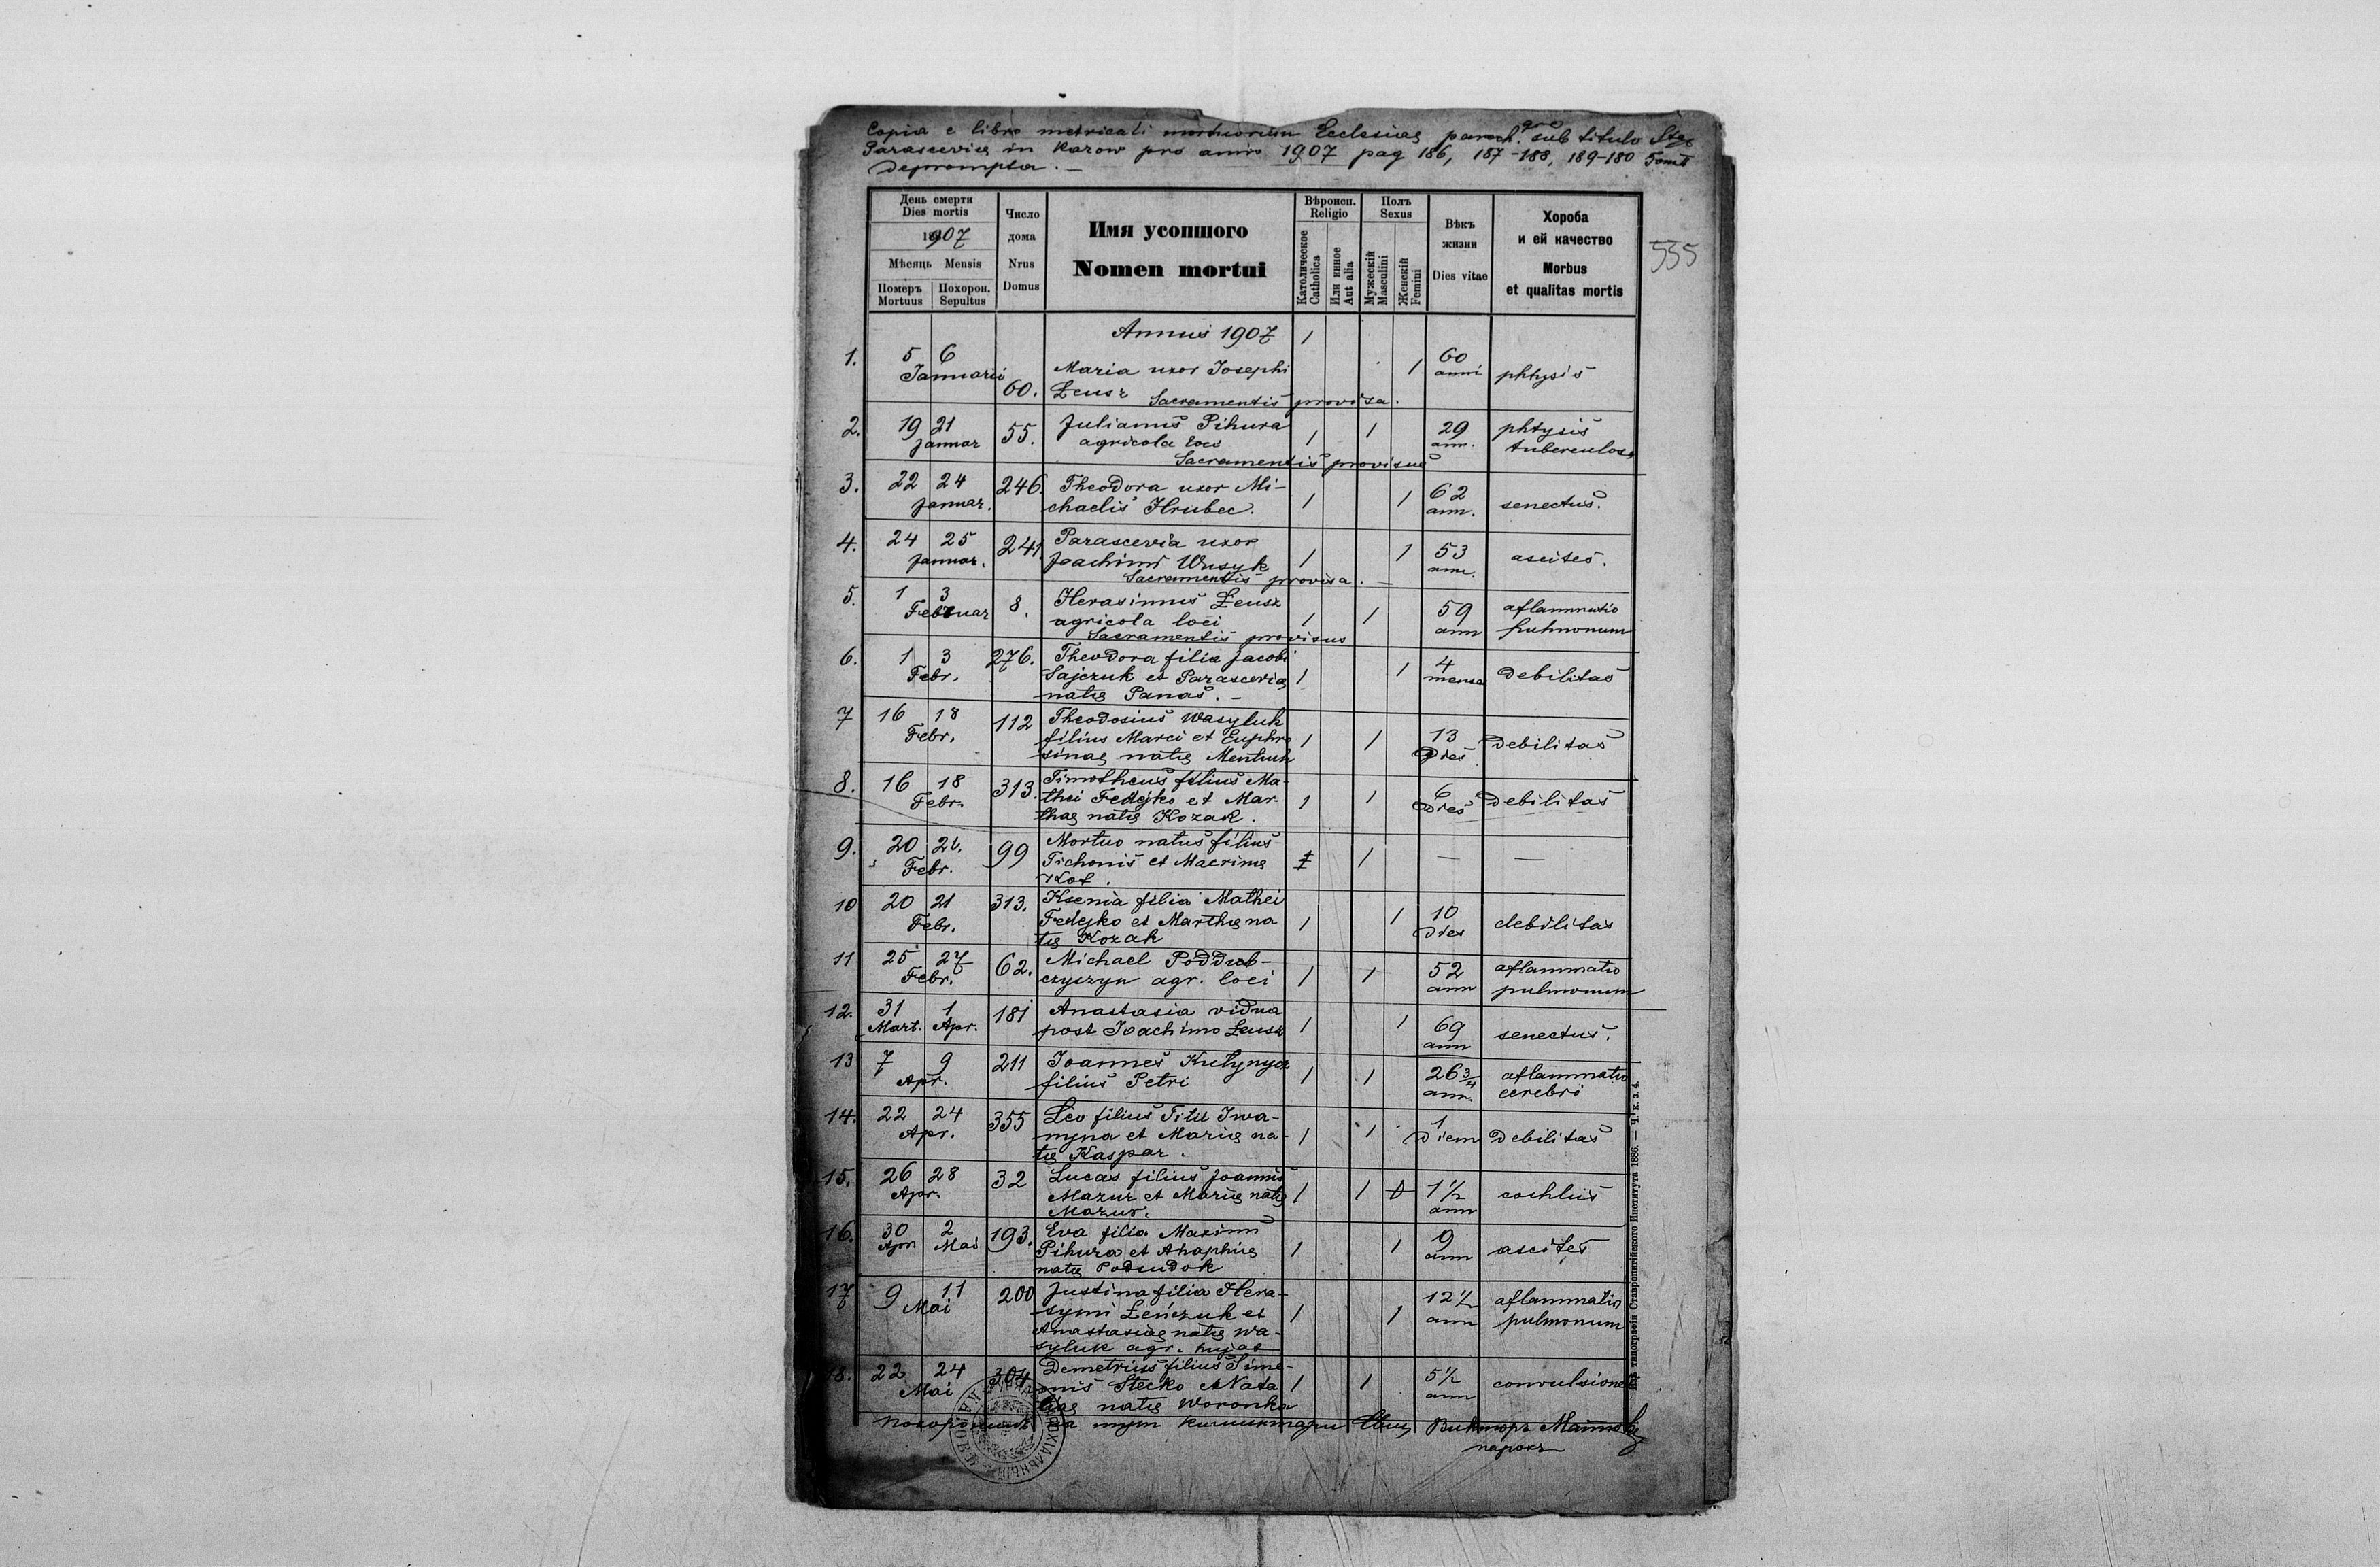 Copia e libro metricali mortuorum Ecclesiae paroch. gr c sub titulo Stae
Parasceviae in Karow pro anno 1907 pag 186, 187-188, 189-180
deprompta.
День смерти
Dies mortis
1907
Мѣсяць Mensis
Померъ Mortuus
Похорон. Sepultus
Число дома
Nrus Domus
Имя усопшого
Nomen mortui
Вѣроисп.
Religio
Католическое
Catholica
Или инное
Aut alia
Полъ
Sexus
Мужескій
Masculini
Женскій
Femini
Вѣкъ жизни
Dies vitae
Хороба
и ей качество
Morbus
et qualitas mortis
535
Annus 1907
1. 5 6 Januarii 60. Maria uxor Josephi 1 1 60 anni phtysis
Łeusz Sacramentis provisa.
2. 19 21 Januar 55. Julianus Pihura 1 1 29 ann. phtysis
agricola loci tuberculosa
Sacramentis provisus
3. 22 24 Januar. 246. Theodora uxor Mi- 1 1 62 ann. senectus.
chaelis Hrubec.
4. 24 25 Januar. 241. Parascevia uxor 1 1 53 ann. ascites.
Joachimi Wusyk
Sacramentis provisa.
5. 1 3 Februar 8. Herasimus Łeusz 1 1 59 ann aflammatio
agricola loci pulmonum
Sacramentis provisus
6. 1 3 Febr. 276. Theodora filia Jacobi 1 1 4 debilitas
Sajczuk et Parasceviae
natae Panas. -
7 16 18 Febr. 112 Theodosius Wasyluk 1 1 13 dies debilitas
filius Marci et Euphro
sinae natae Mentuch
8. 16 18 Febr. 313. Timotheus filius Ma- 1 1 6 dies debilitas
thei Fedejko et Mar-
thae natae Kozak.
9. 20 21. Febr. 99 Mortuo natus filius 1 1 — —
Tichonis et Macrinae
Kot.
10 20 21 Febr. 313. Ksenia filia Mathei 1 1 10 dies debilitas
Fedejko et Marthae na
tae Kozak
11 25 27 Febr. 62. Michael Poddub- 1 1 52 ann aflammatio
czyszyn agr. loci pulmonum
12. 31 Mart. 1 Apr. 181 Anastasia vidua 1 1 69 ann senectus.
post Joachimo Łeusz
13 7 9 Apr. 211 Joannes Kutynycz 1 1 26 3/4 ann. aflammatio
filius Petri cerebri
14. 22 24 Apr. 355 Leo filius Titu Iwa- 1 1 1 diem debilitas
nyna et Mariae na-
tae Kaspar.
15. 26 28 Apr. 32 Lucas filius Joannis 1 1 1 1/2 ann
Mazur et Mariae natae
Mazur.
16. 30 Apr 2 Mai 193. Eva filia Maximi 1 1 9 ann ascites
Pihura et Ahaphiae
natae Podsudok
17 9 11 Mai 200 Justina filia Hera- 1 1 12 1/2 ann aflammatio
symi Łeńczuk et pulmonum
Anastasiae natae Wa-
syluk agr. hujat
18. 22 24 Mai 304 Demetrius filius Sime- 1 1 5 1/2 ann convulsiones
onis Stecko et Nata
liae natae Woronka
Викторъ
парохъ
Изъ типографіи Ставропигійского Института 1886. — Ч. к. з. 4.